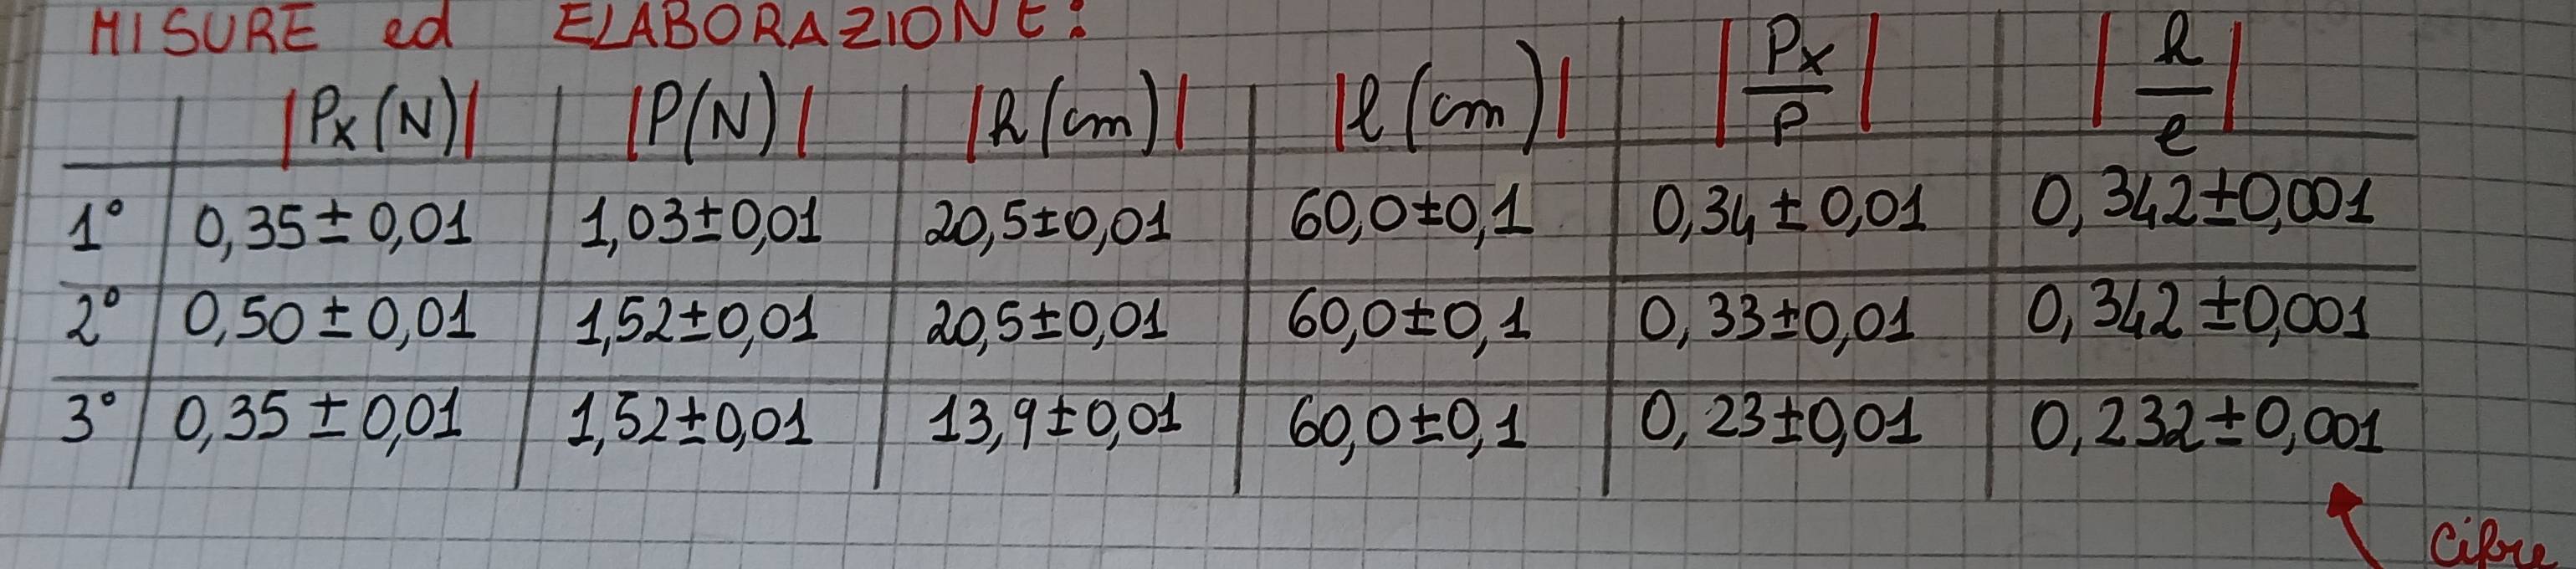 MISURE ed ELABORAZIONE:
|Px(N)| |P(N)| |h(cm)| |l(cm)| |Px/P| |h/l|
1° 0,35±0,01 1,03±0,01 20,5±0,01 60,0±0,1 0,34±0,01 0,342±0,001
2° 0,50±0,01 1,52±0,01 20,5±0,01 60,0±0,1 0,33±0,01 0,342±0,001
3° 0,35±0,01 1,52±0,01 13,9±0,01 60,0±0,1 0,23±0,01 0,232±0,001
Cifre